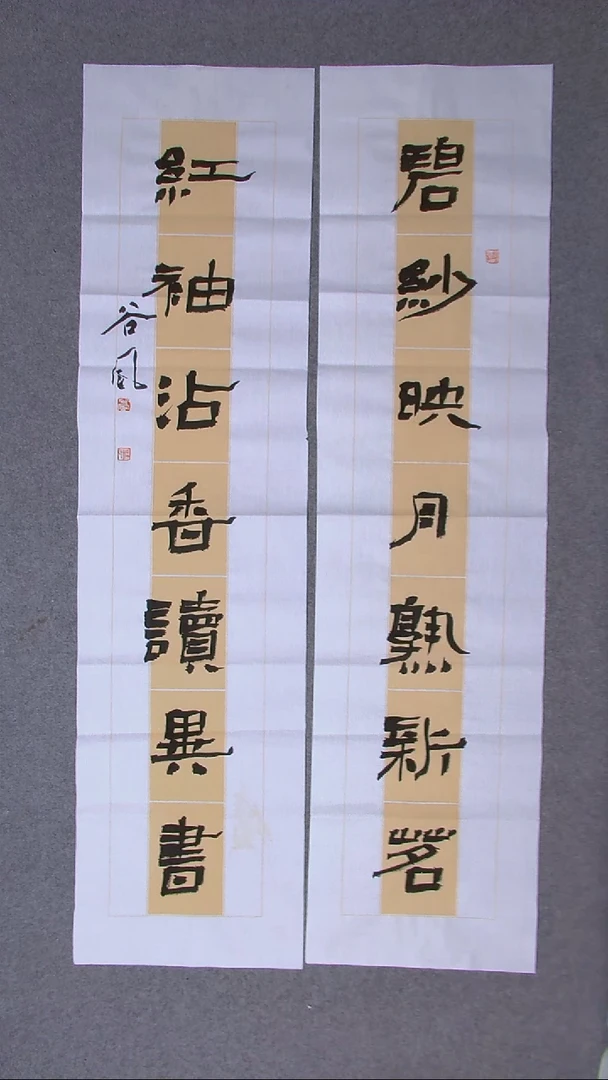 碧紗映月熟新茗
紅袖沾香讀異書
谷風